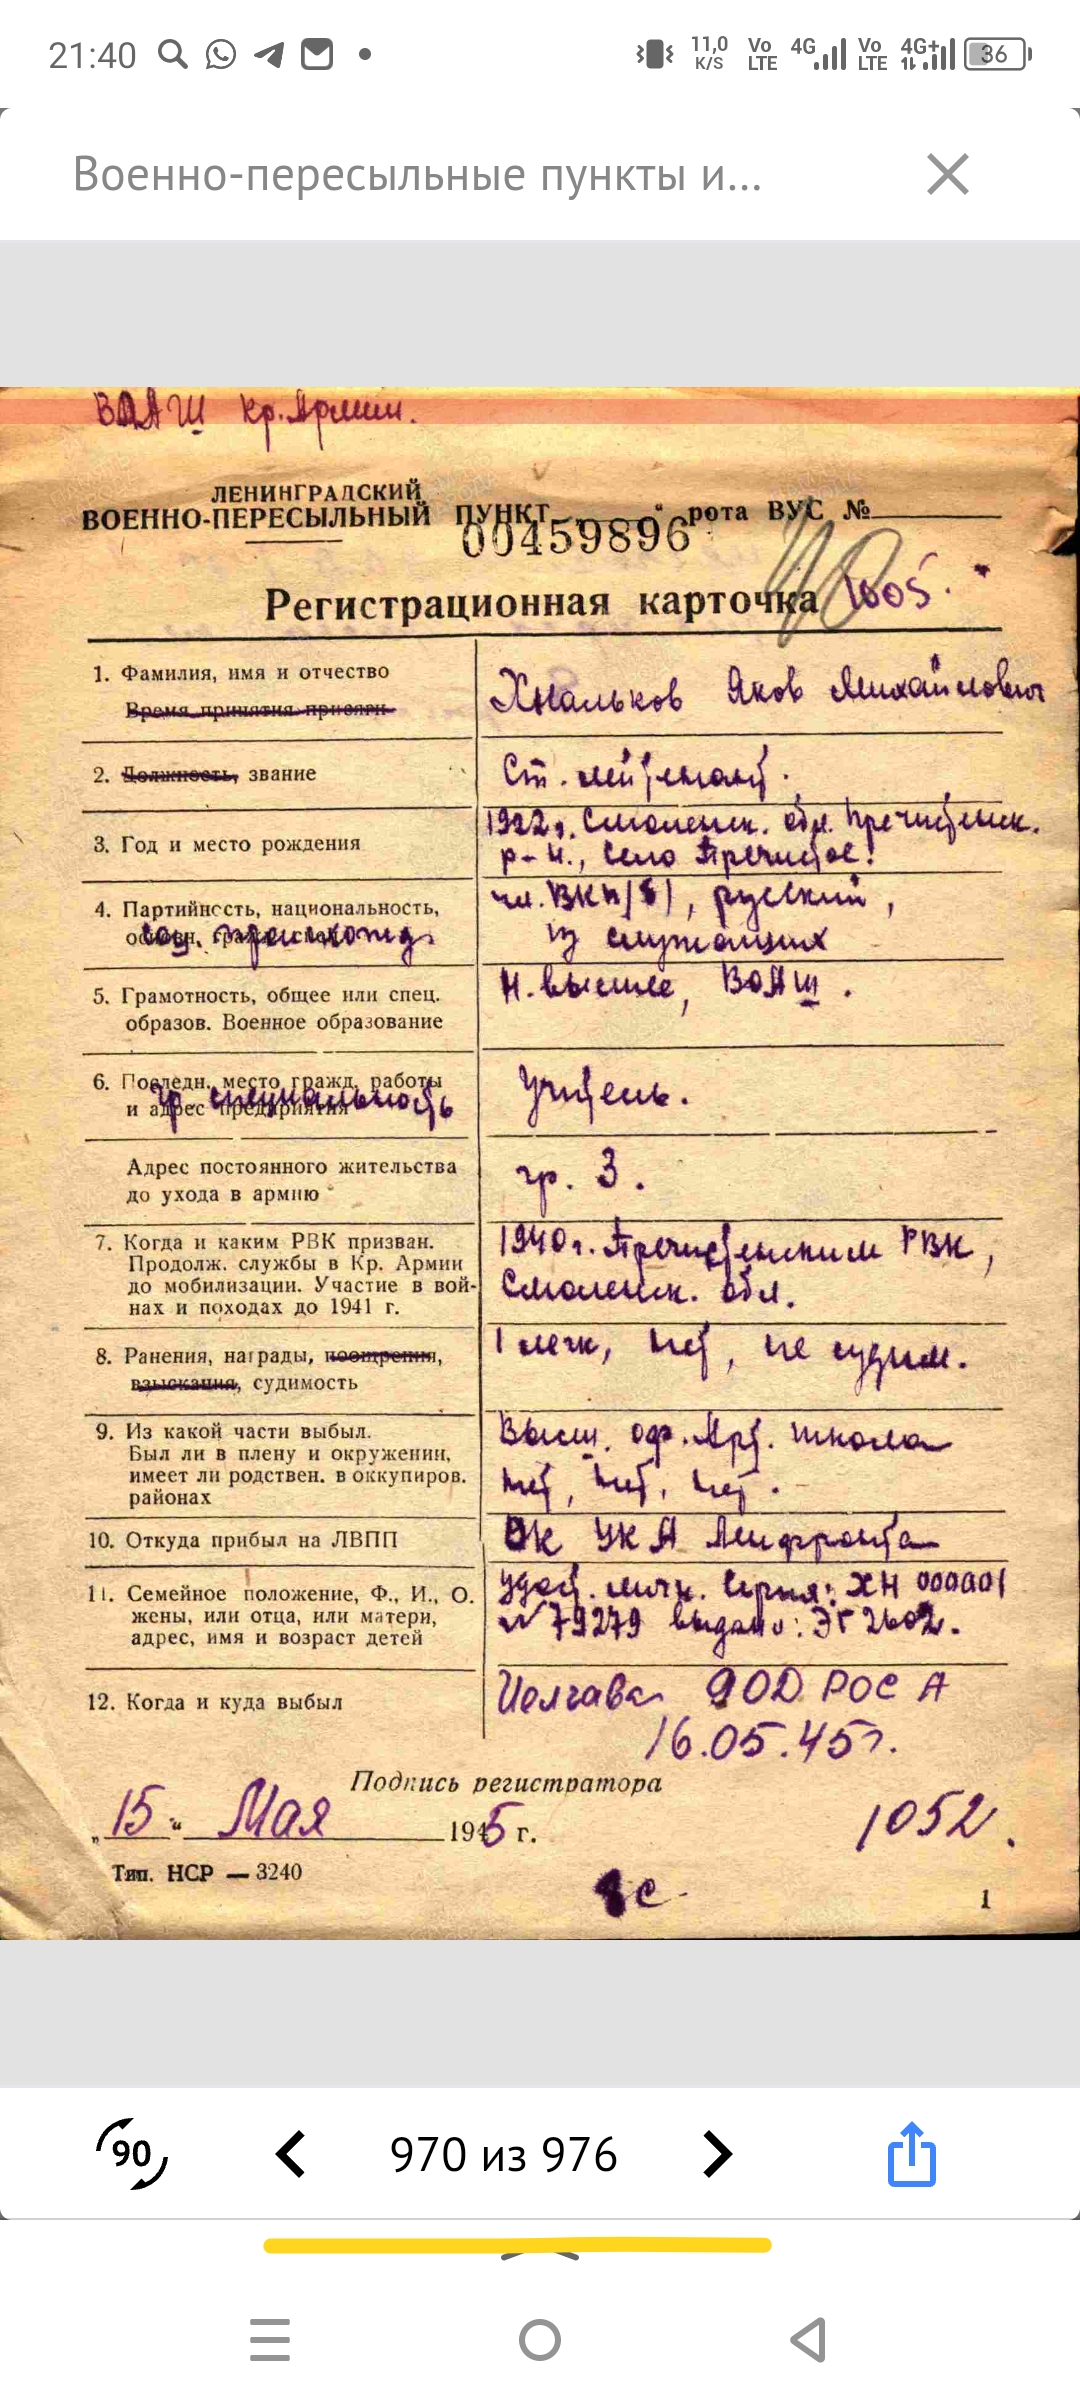 21:40
11,0 K/S Vo LTE 4G Vo LTE 4G+ 36
Военно-пересыльные пункты и...
ВОАШ Кр. Армии.
ЛЕНИНГРАДСКИЙ
ВОЕННО-ПЕРЕСЫЛЬНЫЙ ПУНКТ " рота ВУС №
00459896
Регистрационная карточка 1005.
1. Фамилия, имя и отчество
Время принятия присяги
Хнальков Яков Михайлович
2. Должность, звание
Ст. лейтенант.
3. Год и место рождения
1922 г. Смоленск. обл. Пречистенск.
р-н., село Пречистое.
4. Партийность, национальность,
соц. происхожд.
чл. ВКП/б/, русский,
из служащих
5. Грамотность, общее или спец.
образов. Военное образование
Н. высшее, ВОАШ.
6. Последн. место гражд. работы
и адрес предприятия
гр. специальность
Учитель.
Адрес постоянного жительства
до ухода в армию
гр. 3.
7. Когда и каким РВК призван.
Продолж. службы в Кр. Армии
до мобилизации. Участие в вой-
нах и походах до 1941 г.
1940 г. Пречистенским РВК,
Смоленск. обл.
8. Ранения, награды, поощрения,
взыскания, судимость
1 легк, нет, не судим.
9. Из какой части выбыл.
Был ли в плену и окружении,
имеет ли родствен. в оккупиров.
районах
Высш. оф. Арт. школа
нет, нет, нет.
10. Откуда прибыл на ЛВПП
ОК УК А Ленфронта
11. Семейное положение, Ф., И., О.
жены, или отца, или матери,
адрес, имя и возраст детей
удост. личн. Серия: ХН 000001
№ 79279 выдано: ЭГ 2602.
12. Когда и куда выбыл
Иелгава 90D РОС А
16.05.45г.
Подпись регистратора
„15" Мая 1945 г.
1052.
Тип. НСР — 3240
с.
1
90
970 из 976